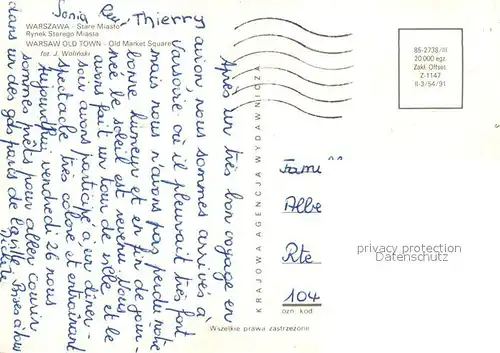 Sonia Thierry
WARSZAWA - Stare Miasto
Rynek Starego Miasta
WARSAW OLD TOWN - Old Market Square
fot. J. Woliński
Après un très bon voyage en
avion, nous sommes arrivés à
Varsovie où il pleuvait très fort
mais nous n'avons pas perdu notre
bonne humeur et en fin de jour-
née le soleil est revenu. Nous
avons fait un tour de ville et le
soir avons participé à un dîner-
spectacle très coloré et entraînant
Aujourd'hui vendredi 26 nous
sommes prêts pour aller courir
dans un des gds parcs de la ville Bises à tous
KRAJOWA AGENCJA WYDAWNICZA
85-2738/III
20.000 egz.
Zakł. Offset.
Z-1147
II-3/54/91
Fami
Albe
Rte
104
ozn. kod
privacy protection
Datenschutz
Wszelkie prawa zastrzeżone